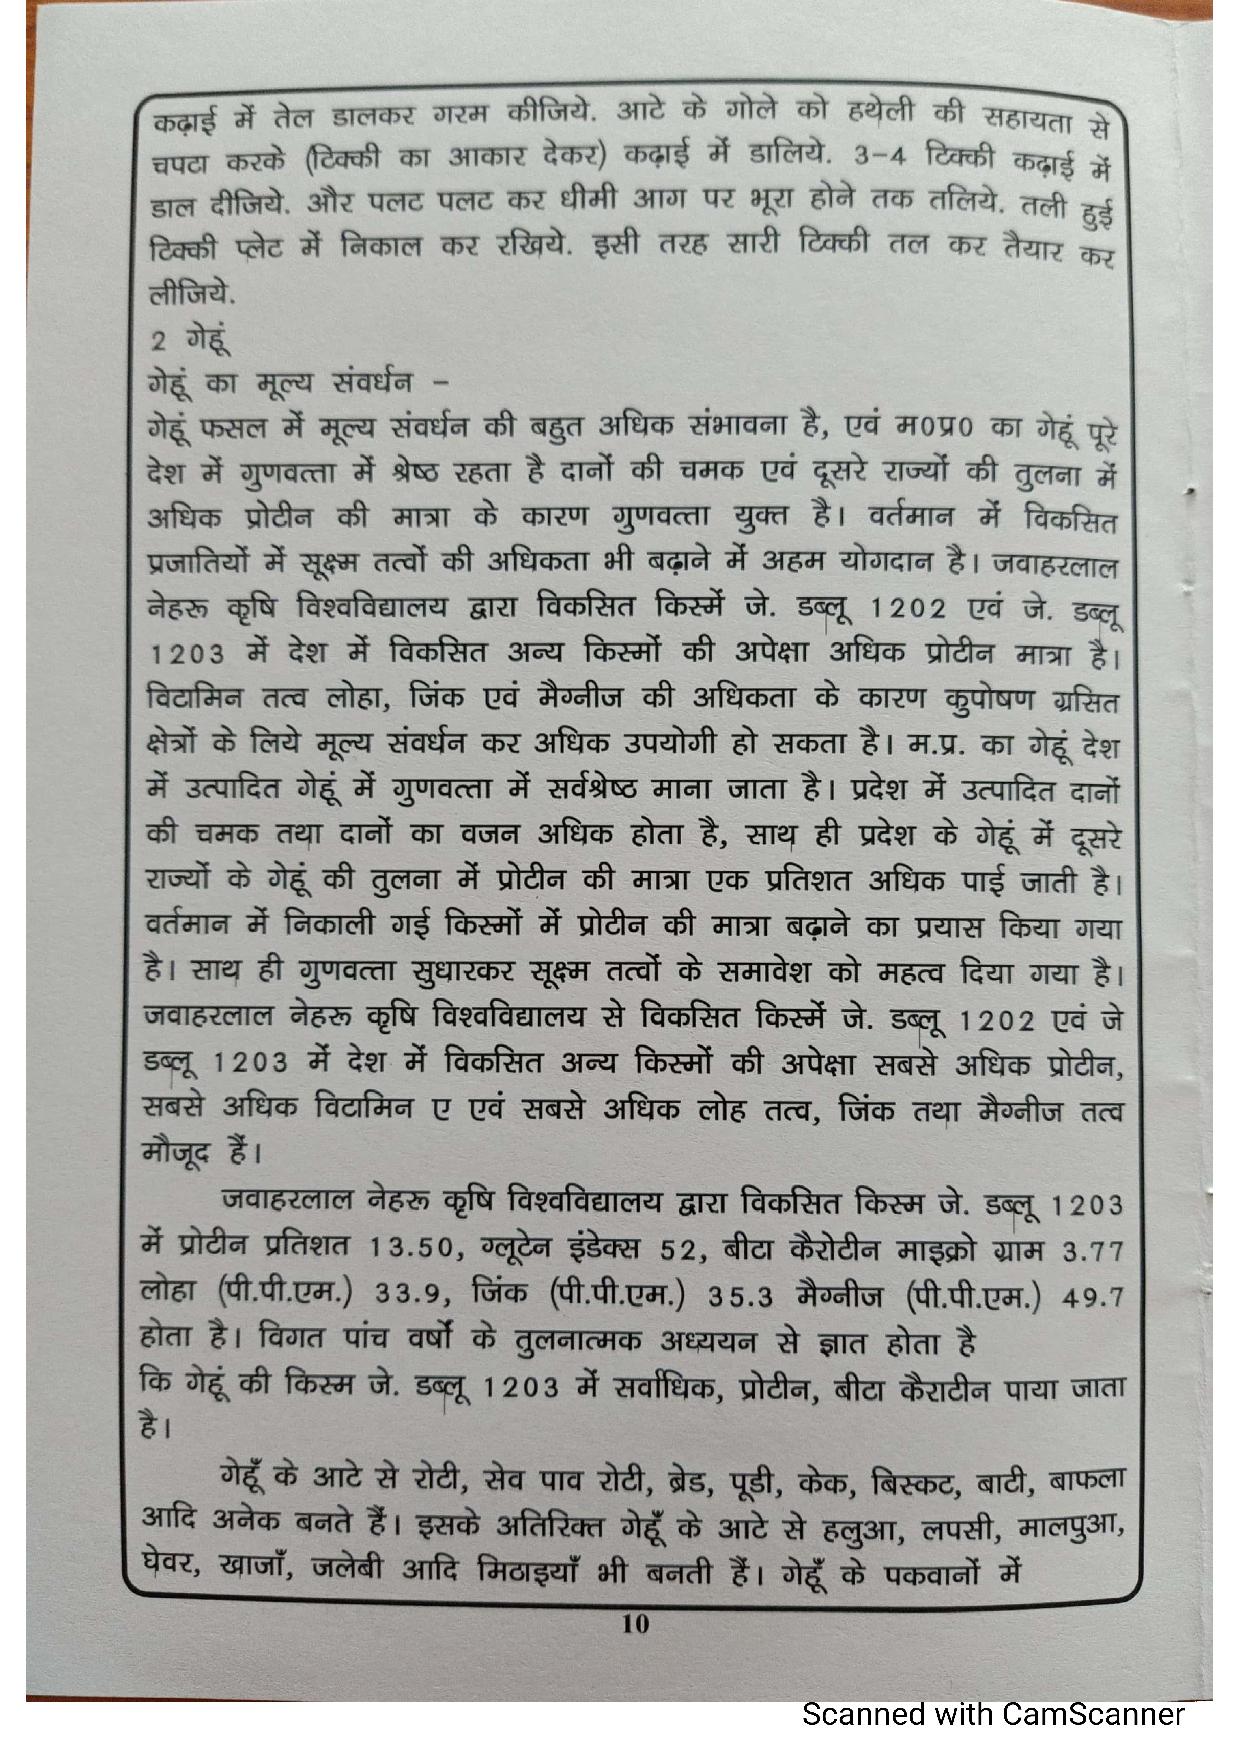 कढ़ाई में तेल डालकर गरम कीजिये. आटे के गोले को हथेली की सहायता से
चपटा करके (टिक्की का आकार देकर) कढ़ाई में डालिये. 3-4 टिक्की कढ़ाई में
डाल दीजिये. और पलट पलट कर धीमी आग पर भूरा होने तक तलिये. तली हुई
टिक्की प्लेट में निकाल कर रखिये. इसी तरह सारी टिक्की तल कर तैयार कर
लीजिये.
2 गेहूं
गेहूं का मूल्य संवर्धन –
गेहूं फसल में मूल्य संवर्धन की बहुत अधिक संभावना है, एवं म0प्र0 का गेहूं पूरे
देश में गुणवत्ता में श्रेष्ठ रहता है दानों की चमक एवं दूसरे राज्यों की तुलना में
अधिक प्रोटीन की मात्रा के कारण गुणवत्ता युक्त है। वर्तमान में विकसित
प्रजातियों में सूक्ष्म तत्वों की अधिकता भी बढ़ाने में अहम योगदान है। जवाहरलाल
नेहरू कृषि विश्वविद्यालय द्वारा विकसित किस्में जे. डब्लू 1202 एवं जे. डब्लू
1203 में देश में विकसित अन्य किस्मों की अपेक्षा अधिक प्रोटीन मात्रा है।
विटामिन तत्व लोहा, जिंक एवं मैग्नीज की अधिकता के कारण कुपोषण ग्रसित
क्षेत्रों के लिये मूल्य संवर्धन कर अधिक उपयोगी हो सकता है। म.प्र. का गेहूं देश
में उत्पादित गेहूं में गुणवत्ता में सर्वश्रेष्ठ माना जाता है। प्रदेश में उत्पादित दानों
की चमक तथा दानों का वजन अधिक होता है, साथ ही प्रदेश के गेहूं में दूसरे
राज्यों के गेहूं की तुलना में प्रोटीन की मात्रा एक प्रतिशत अधिक पाई जाती है।
वर्तमान में निकाली गई किस्मों में प्रोटीन की मात्रा बढ़ाने का प्रयास किया गया
है। साथ ही गुणवत्ता सुधारकर सूक्ष्म तत्वों के समावेश को महत्व दिया गया है।
जवाहरलाल नेहरू कृषि विश्वविद्यालय से विकसित किस्में जे. डब्लू 1202 एवं जे
डब्लू 1203 में देश में विकसित अन्य किस्मों की अपेक्षा सबसे अधिक प्रोटीन,
सबसे अधिक विटामिन ए एवं सबसे अधिक लोह तत्व, जिंक तथा मैग्नीज तत्व
मौजूद हैं।
जवाहरलाल नेहरू कृषि विश्वविद्यालय द्वारा विकसित किस्म जे. डब्लू 1203
में प्रोटीन प्रतिशत 13.50, ग्लूटेन इंडेक्स 52, बीटा कैरोटीन माइक्रो ग्राम 3.77
लोहा (पी.पी.एम.) 33.9, जिंक (पी.पी.एम.) 35.3 मैग्नीज (पी.पी.एम.) 49.7
होता है। विगत पांच वर्षों के तुलनात्मक अध्ययन से ज्ञात होता है
कि गेहूं की किस्म जे. डब्लू 1203 में सर्वाधिक, प्रोटीन, बीटा कैराटीन पाया जाता
है।
गेहूँ के आटे से रोटी, सेव पाव रोटी, ब्रेड, पूडी, केक, बिस्कट, बाटी, बाफला
आदि अनेक बनते हैं। इसके अतिरिक्त गेहूँ के आटे से हलुआ, लपसी, मालपुआ,
घेवर, खाजाँ, जलेबी आदि मिठाइयाँ भी बनती हैं। गेहूँ के पकवानों में
10
Scanned with CamScanner